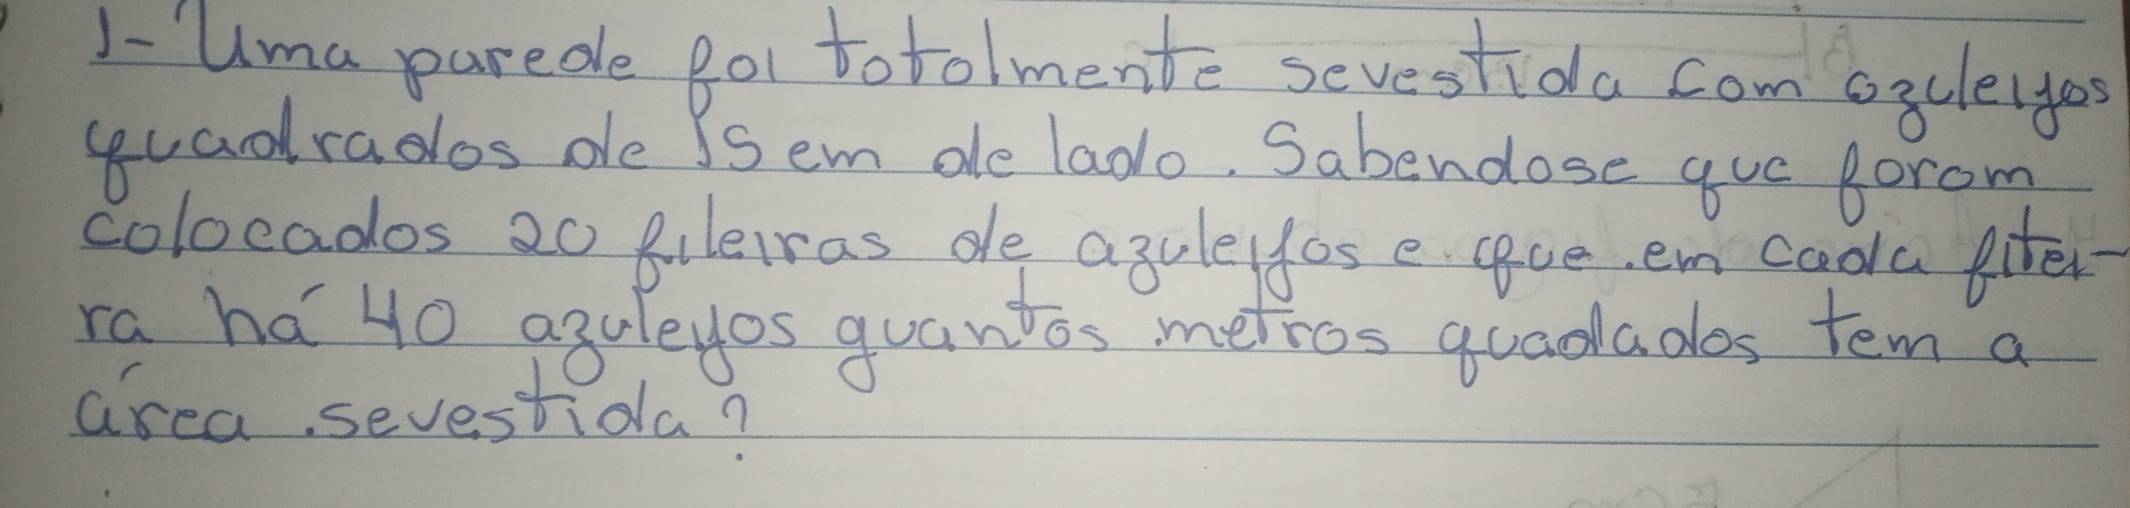 1- Uma parede foi totolmente sevestida com ozuleijos
quadrados de 15 em de lado. Sabendose que forom
colocados 20 fileiras de azuleijos e que em cada filei-
ra há 40 azuleijos quantos metros quadados tem a
área sevestida?